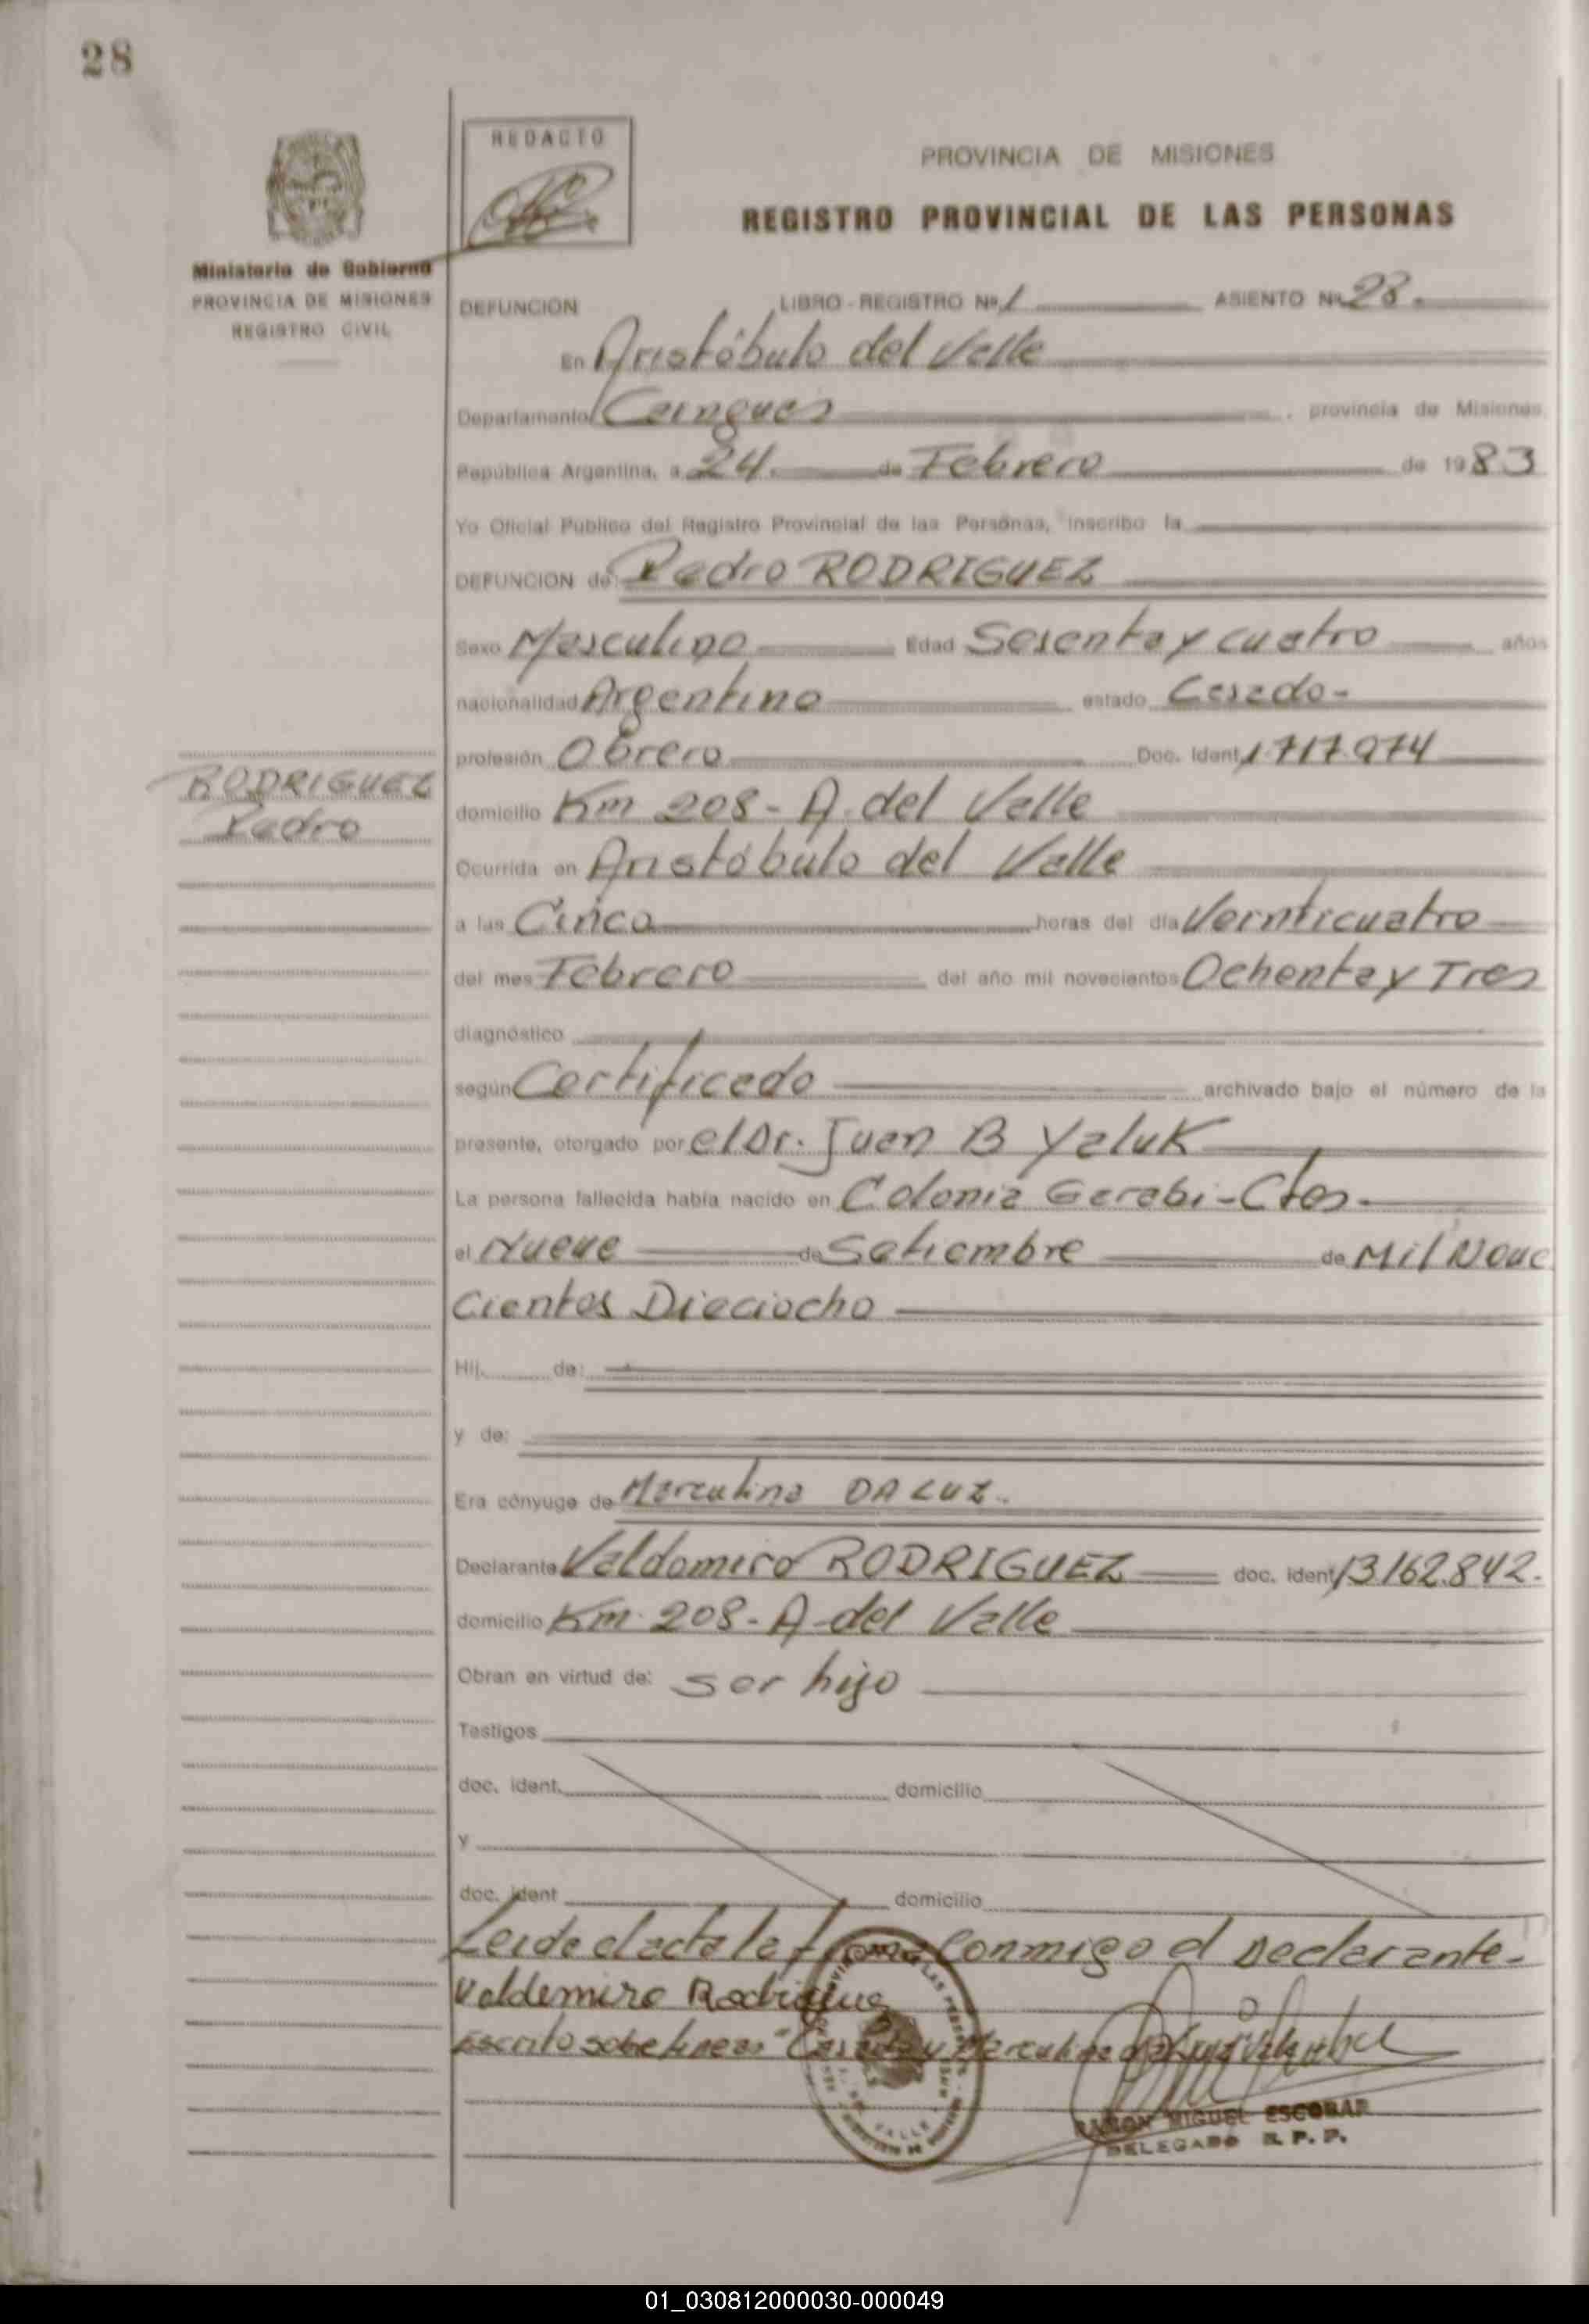 28
REDACTO
Ministerio de Gobierno
PROVINCIA DE MISIONES
REGISTRO CIVIL
PROVINCIA DE MISIONES
REGISTRO PROVINCIAL DE LAS PERSONAS
DEFUNCION LIBRO - REGISTRO Nº 1 ASIENTO Nº 28.
En Aristóbulo del Valle
Departamento Cainguas, provincia de Misiones
República Argentina, a 24 de Febrero de 1983
Yo Oficial Público del Registro Provincial de las Personas, inscribo la
DEFUNCION de: Pedro RODRIGUEZ
Sexo Masculino Edad Sesenta y cuatro años
nacionalidad Argentina estado Casado-
profesión Obrero Doc. Ident. 1.717.974
RODRIGUEZ
Pedro
domicilio Km 208 - A. del Valle
Ocurrida en Aristóbulo del Valle
a las Cinco horas del día Veinticuatro
del mes Febrero del año mil novecientos Ochenta y Tres
diagnóstico
según Certificado archivado bajo el número de la
presente, otorgado por el Dr. Juan B Yaluk
La persona fallecida había nacido en Colonia Garabi - Ctes.
el Nueve de Setiembre de Mil Nove
Cientos Dieciocho
Hij de:
y de:
Era cónyuge de Marculina DA LUZ.
Declarante Valdomiro RODRIGUEZ doc. ident. 13.162.842.
domicilio Km. 208 - A. del Valle
Obran en virtud de: ser hijo
Testigos
doc. ident. domicilio
y
doc. ident domicilio
Leida el acta la firma Conmigo el Declarante-
Valdemiro Rodrigue
Escrito sobre lineas "Casado y Marculina da Luz
RAMON MIGUEL ESCOBAR
DELEGADO R. P. P.
01_030812000030-000049